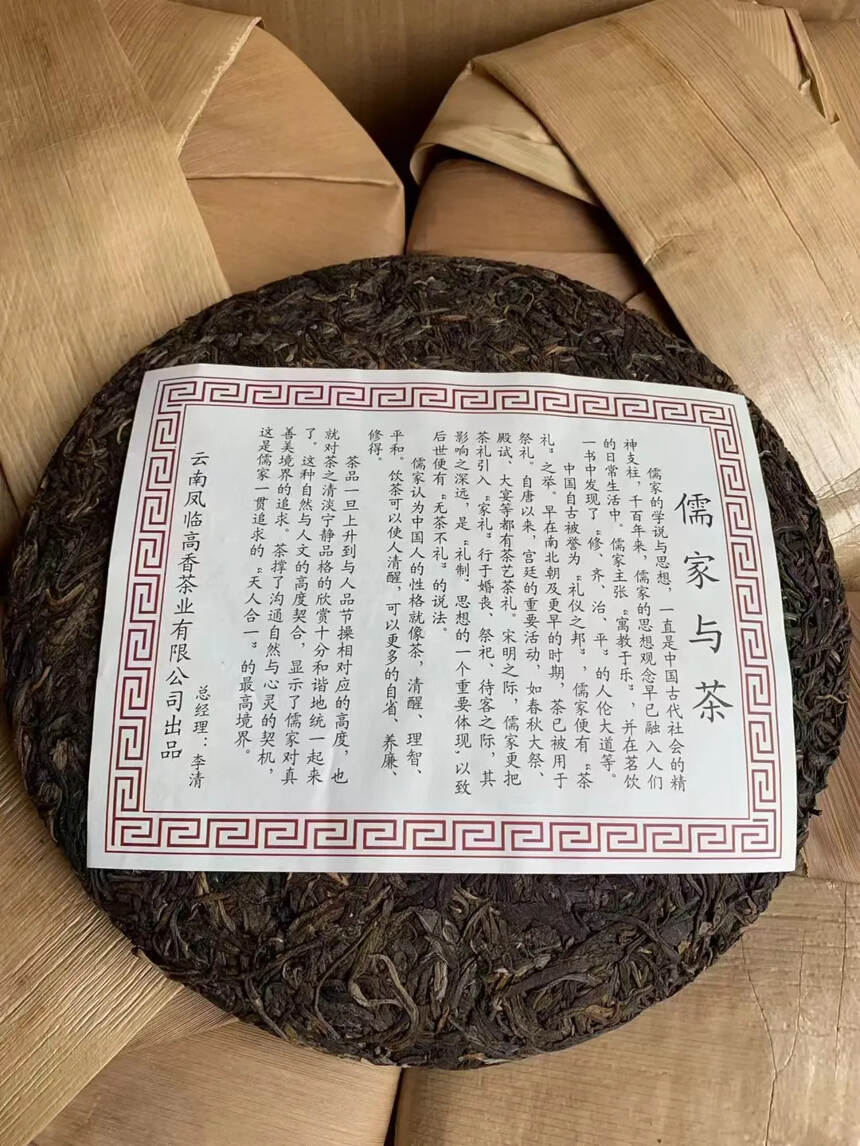 儒家与茶
儒家的学说与思想，一直是中国古代社会的精
神支柱，千百年来，儒家的思想观念早已融入人们
的日常生活中。儒家主张“寓教于乐”，并在茗饮
一书中发现了“修、齐、治、平”的人伦大道等。
中国自古被誉为“礼仪之邦”，儒家便有“茶
礼”之举。早在南北朝及更早的时期，茶已被用于
祭礼。自唐以来，宫廷的重要活动，如春秋大祭、
殿试、大宴等都有茶艺茶礼。宋明之际，儒家更把
茶礼引入“家礼”行于婚丧、祭祀、待客之际，其
影响之深远，是“礼制”思想的一个重要体现”以致
后世便有“无茶不礼”的说法。
儒家认为中国人的性格就像茶，清醒、理智、
平和。饮茶可以使人清醒，可以更多的自省、养廉、
修得。
茶品一旦上升到与人品节操相对应的高度，也
就对茶之清淡宁静品格的欣赏十分和谐地统一起来
了。这种自然与人文的高度契合，显示了儒家对真
善美境界的追求。茶撑了沟通自然与心灵的契机，
这是儒家一贯追求的“天人合一”的最高境界。
总经理：李清
云南凤临高香茶业有限公司出品